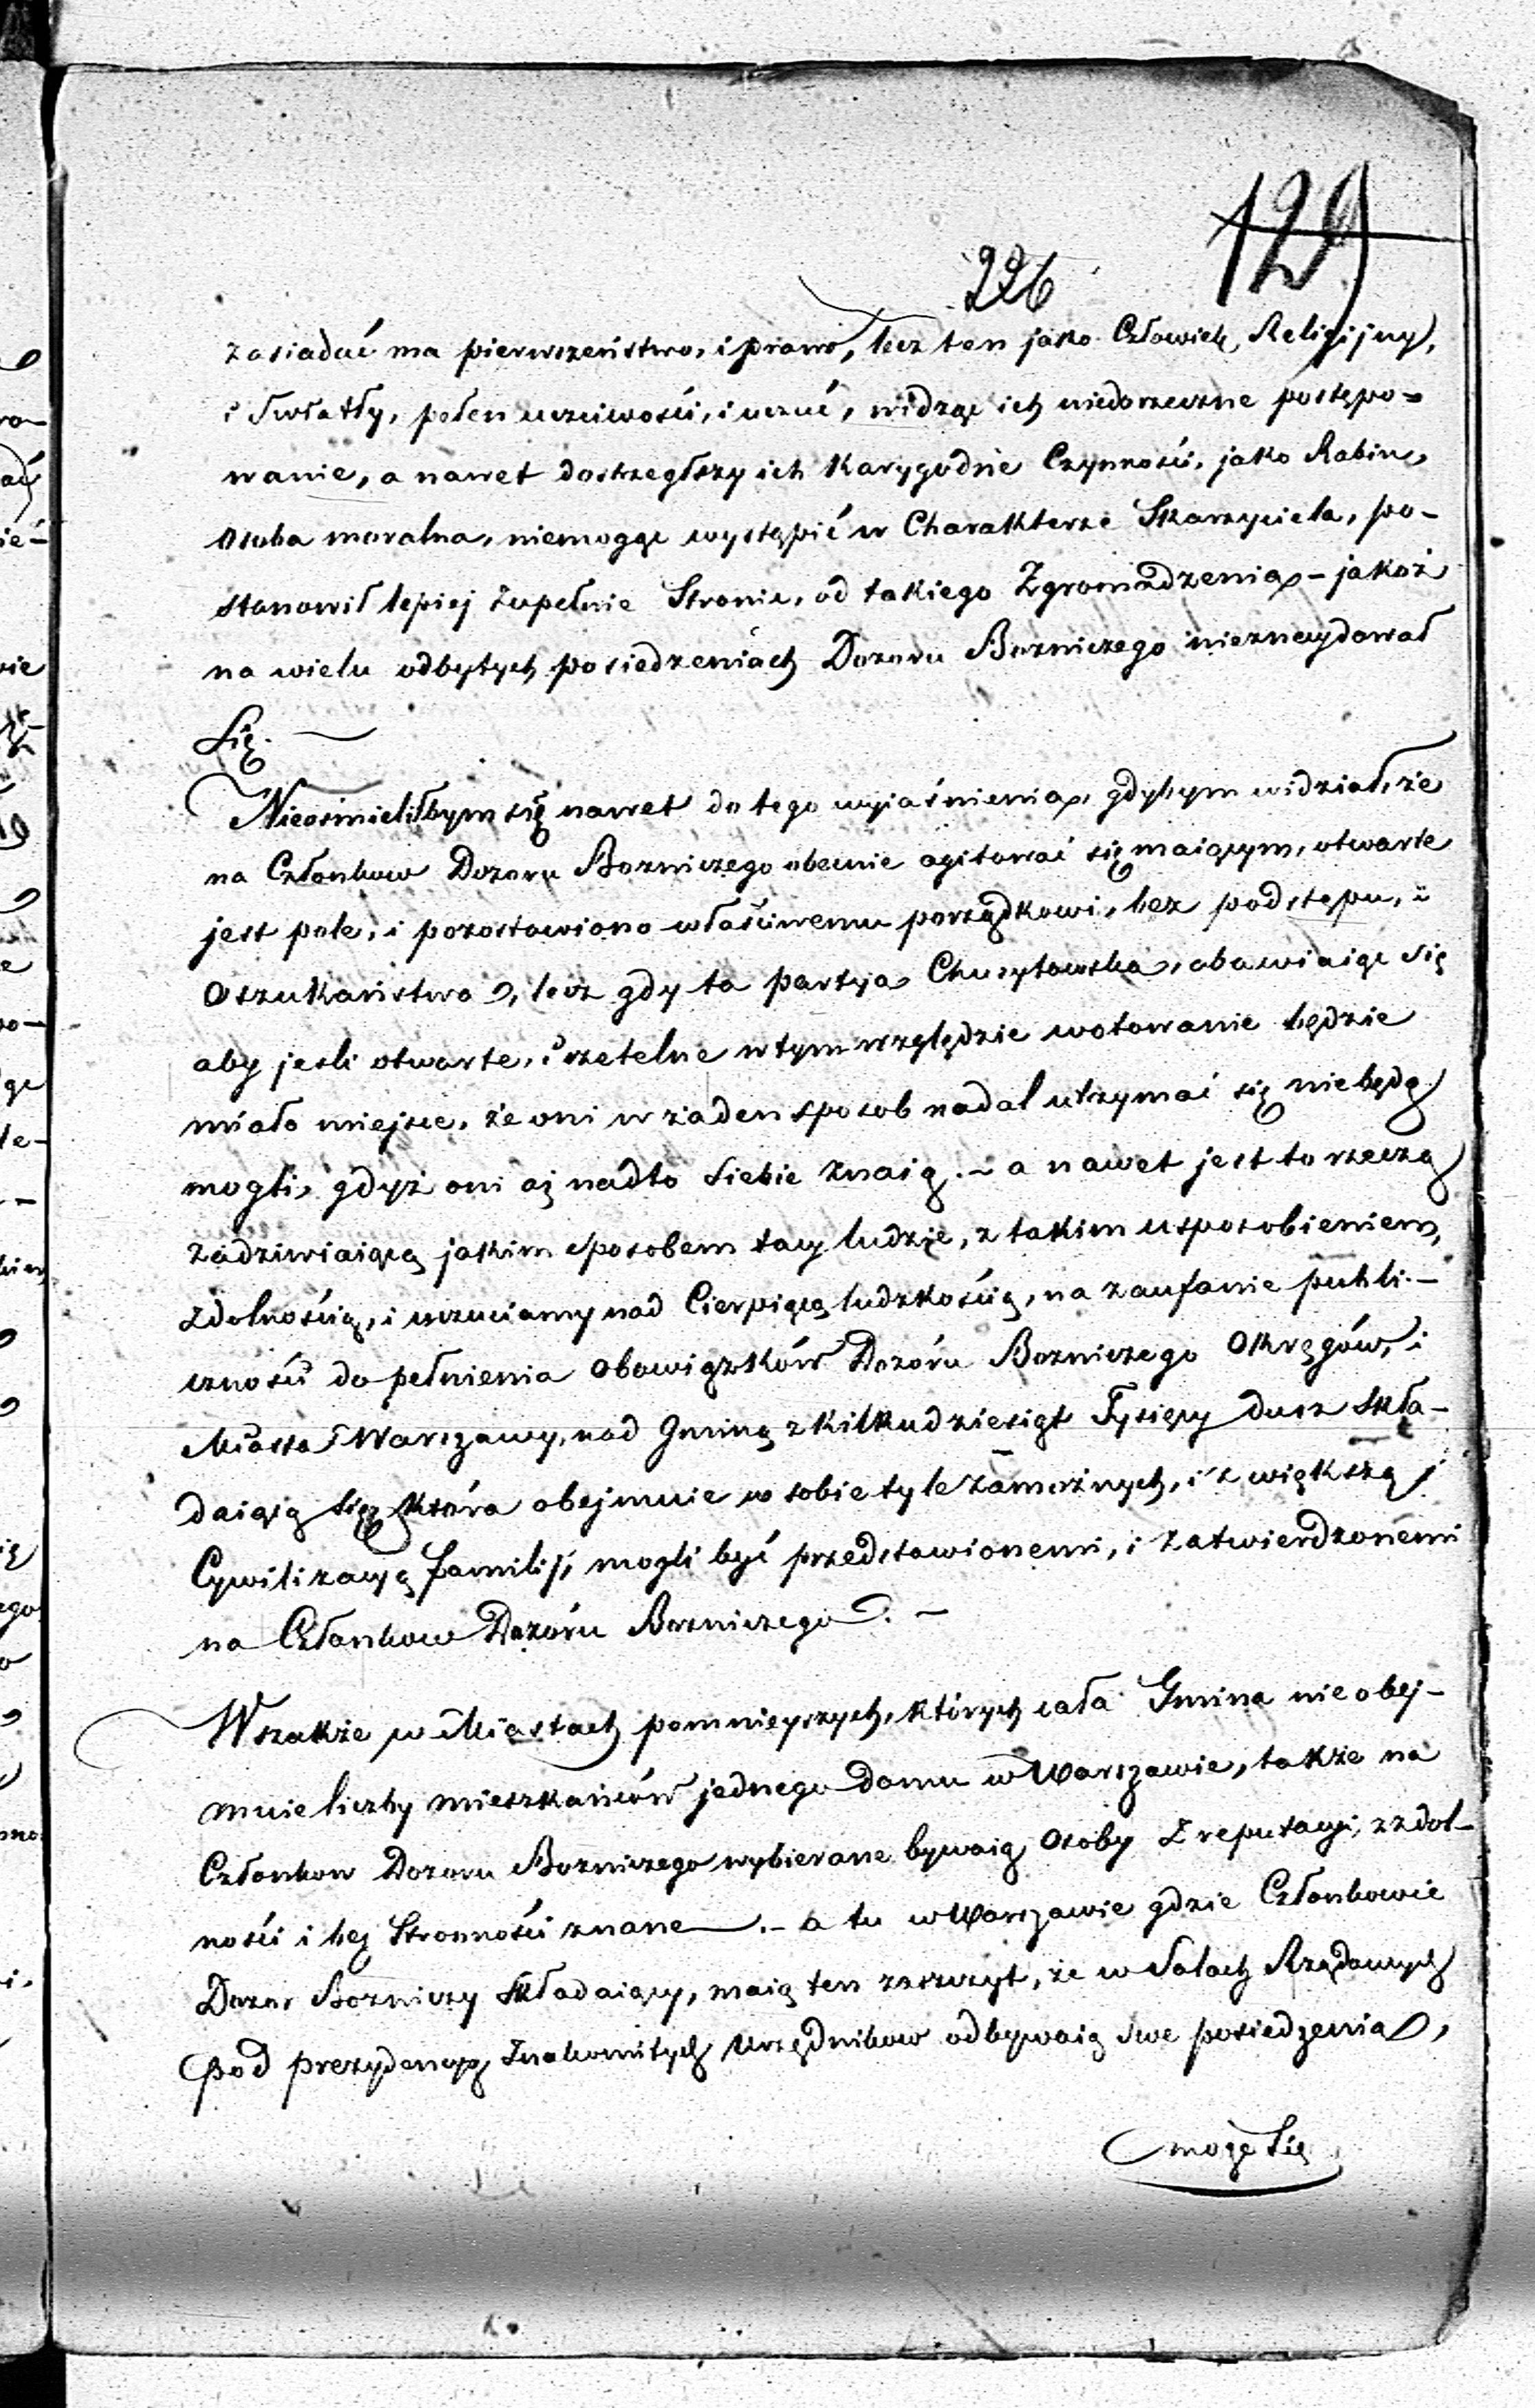 129
226
zasiadać ma pierwszeństwo, i prawo, lecz ten jako Człowiek Religijny,
i Światły, pełen uczciwości, i uczuć, widząc ich niedorzeczne postępo-
wanie, a nawet dostrzegłszy ich Karygodne Czynności, jako Rabin,
Osoba moralna, niemogąc wystąpić w Charakterze Skarzyciela, po-
stanowił lepiej zupełnie Stronić, od takiego Zgromadzenia, – jakoż
na wielu odbytych posiedzeniach Dozoru Bozniczego nieznaydował
Się. —
Nieośmieliłbym się nawet do tego wyiaśnienia, gdybym widział, że
na Członkow Dozoru Bozniczego obecnie agitować się maiącym, otwarte
jest pole, i pozostawiono właściwemu porządkowi, bez podstępu, i
Oszukaństwa, lecz gdy ta partya Chusytowska, obawiaiąc się
aby jesli otwarte, i rzetelne w tym względzie wotowanie będzie
miało miejsce, że oni w żaden sposob nadal utrzymać się niebędą
mogli, gdyż oni aż nadto siebie znaią. – a nawet jest to rzeczą
zadziwiaiącą jakim sposobem tacy ludzie, z takim usposobieniem,
zdolnością, i uczuciamy nad Cierpiącą ludzkością, na zaufanie publi-
czności do pełnienia Obowiązków Dozoru Bozniczego Okręgów, i
Miasta Warszawy, nad Gminą z kilkudziesiąt Tysięcy dusz Skła-
daiącą się, która obejmuie w sobie tyle zamożnych, i z większą
Cywilizacyą familij, mogli być przedstawionemi, i zatwierdzonemi
na Członkow Dozoru Bozniczego. –
Wszakże w Miastach pomnieyszych, których cała Gmina nie obej-
muie liczby mieszkańców jednego Domu w Warszawie, także na
Członkow Dozoru Bozniczego wybierane bywaią Osoby z reputacyi, z zdol-
ności i bez Stronności znane. – a tu w Warszawie gdzie Członkowie
Dozor Bozniczy Składaiący, maią ten zaszczyt, że w Salach Rządowych
pod prezydencyą Znakomitych Urzędnikow odbywaią swe posiedzenia,
mogę Się